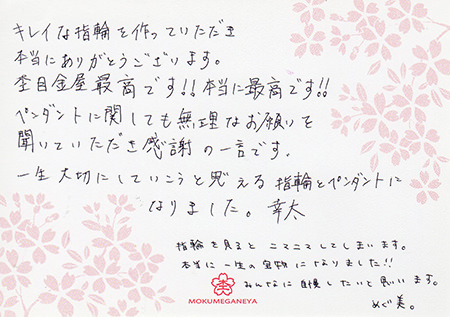 キレイな指輪を作っていただき
本当にありがとうございます。
杢目金屋最高です!!本当に最高です!!
ペンダントに関しても無理なお願いを
聞いていただき感謝の一言です。
一生大切にしていこうと思える指輪とペンダントに
なりました。幸太
指輪を見ると ニマニマしてしまいます。
本当に一生の宝物になりました!!
みんなに自慢したいと思います。
めぐ美。
MOKUMEGANEYA